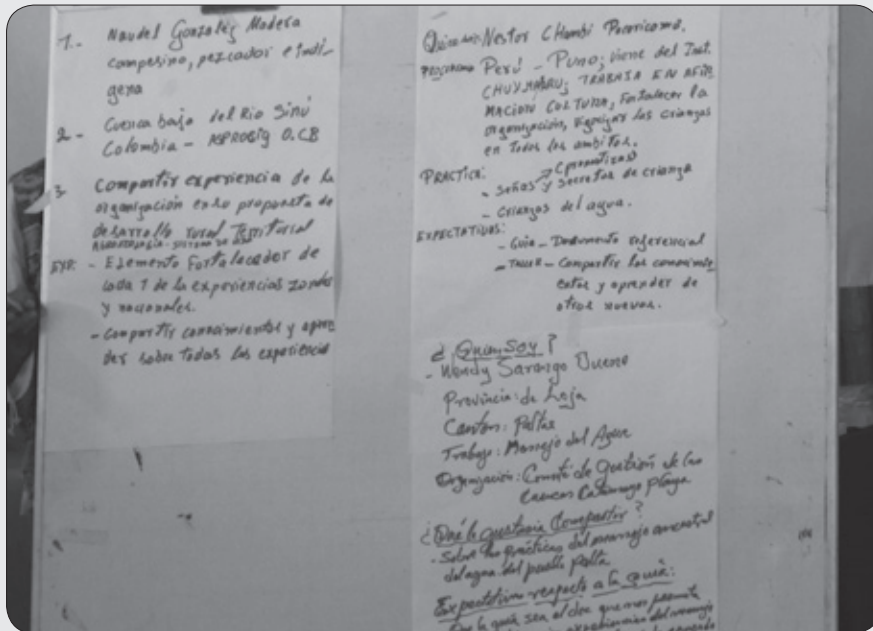 1.- Naudel González Madera
campesino, pezcador e indí-
gena
2- Cuenca baja del Rio Sinú
Colombia - ASPROCIG O.CB
3- Compartir experiencia de la
organización en la propuesta de
desarrollo rural Territorial
EXP. - Elemento Fortalecedor de
cada 1 de la experiencias zonales
y nacionales.
- Compartir conocimientos y apren
der sobre todas las experiencia
Quien soy: Nestor CHambi Pacoricona.
Perú - Puno; viene del Inst.
CHUYMA ARU; TRABAJA EN AFIR
MACION CULTURAL, Fortalecer la
organización, las crianzas
en Todos los ambitos.
PRACTICA:
- Señas y Secretos de crianza
- Crianzas del agua.
EXPECTATIVAS:
- Guia - Documento referencial
- TALLER - Compartir los conocimi
entos y aprender de
otros nuevos.
¿Quien Soy?
- Wendy Sarango Bueno
Provincia: de Loja
Canton: Paltas
Trabajo: Manejo del Agua
Organización: Comité de Gestión de las
Cuencas Catamayo Playa
¿Qué le gustaria Compartir?
- Sobre las prácticas del manejo ancestral
del agua del pueblo palta
Expectativas respecto a la guía:
Que la guía sea el que nos permita
experiencias del manejo